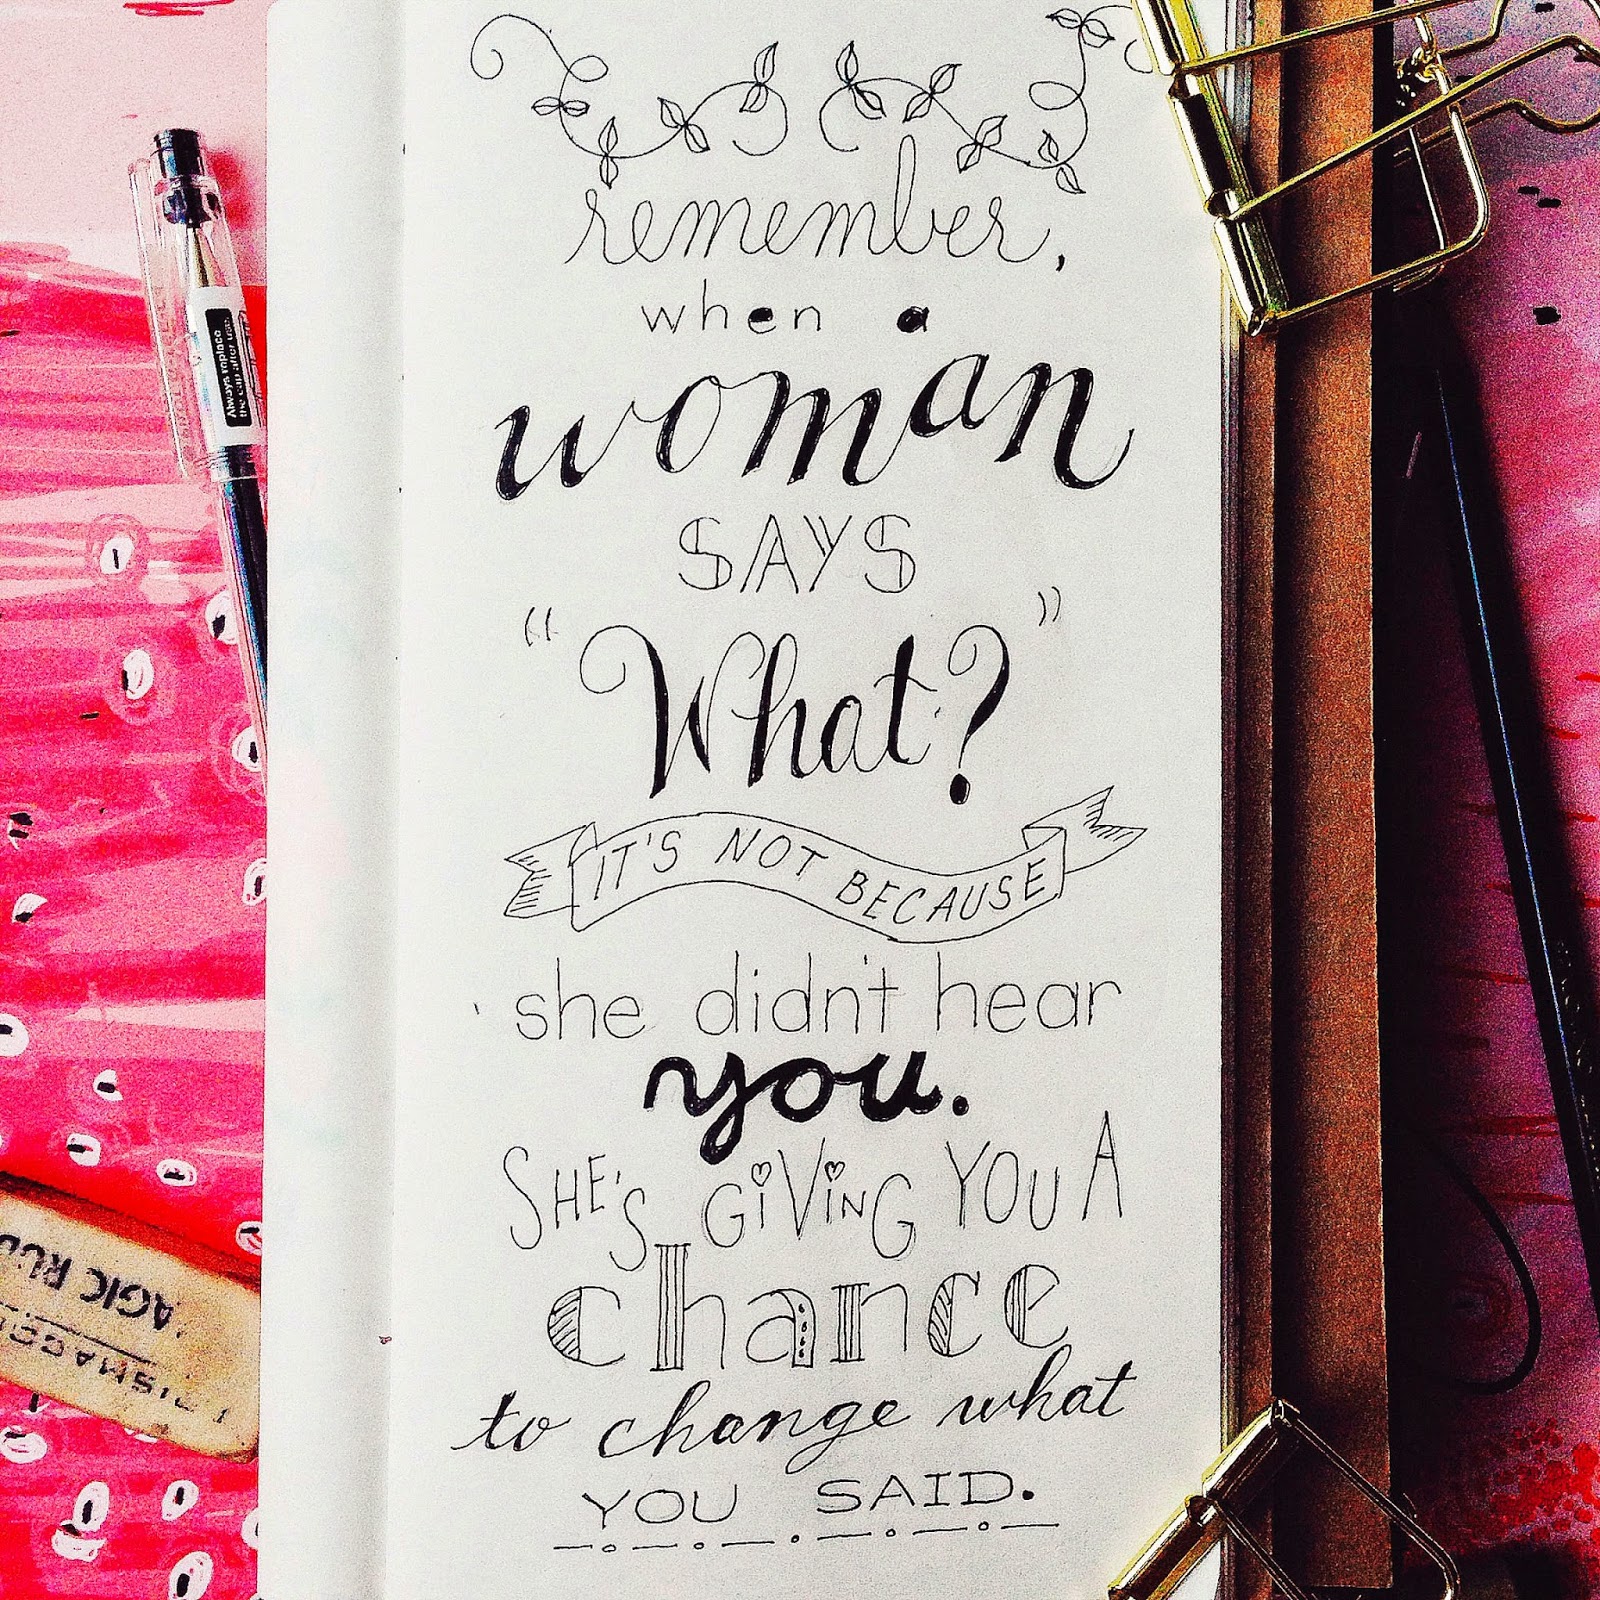 remember,
when a
woman
SAYS
“What?”
IT'S NOT BECAUSE
she didn't hear
you.
SHE'S GiViNG YOU A
chance
to change what
YOU SAID.
Always replace
the cap after use.
AGIC RU